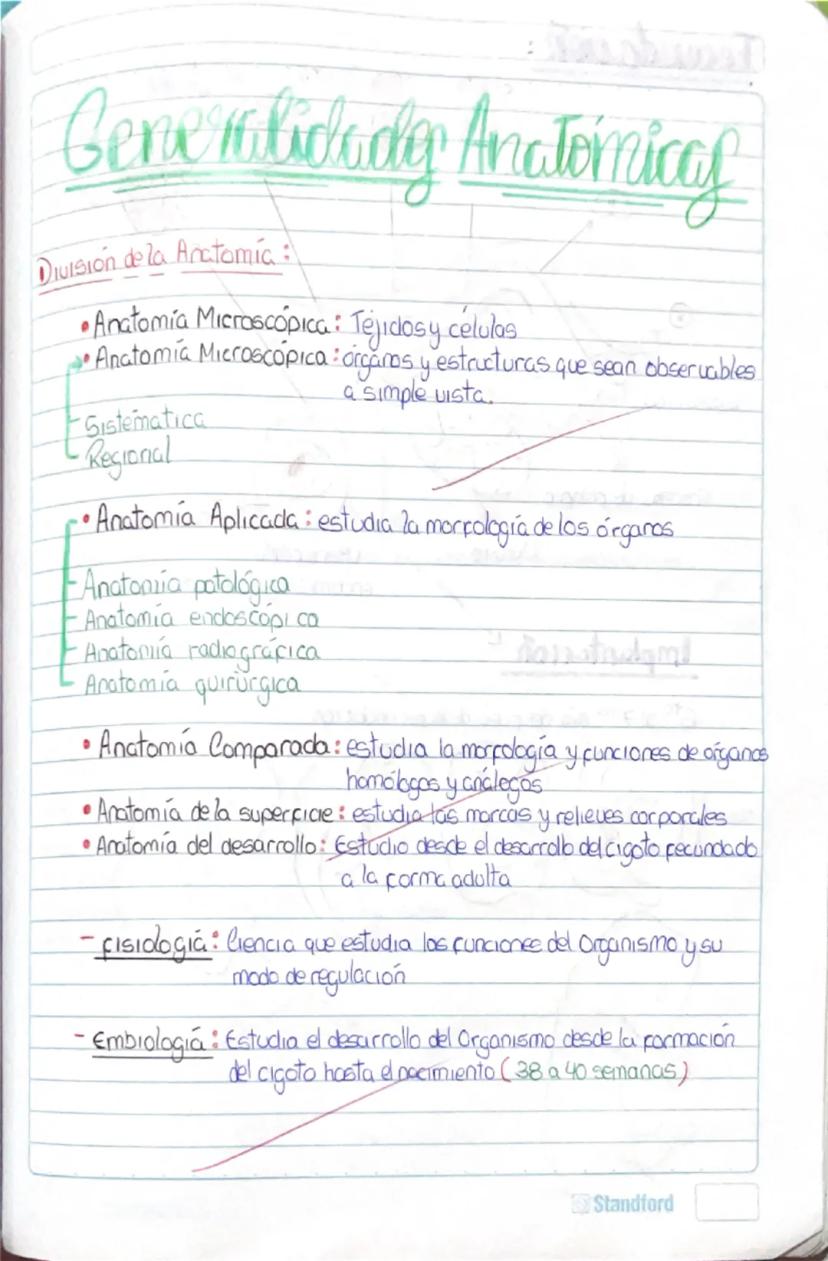 Generalidades Anatómicas
División de la Anatomía:
• Anatomía Microscópica: Tejidos y células
• Anatomía Microscópica: órganos y estructuras que sean observables
a simple vista.
Sistematica
Regional
• Anatomía Aplicada: estudia la morfología de los órganos
Anatomía patológica
Anatomía endoscópica
Anatomía radiográfica
Anatomía quirúrgica
• Anatomía Comparada: estudia la morfología y funciones de órganos
homólogos y análogos
• Anatomía de la superficie: estudia las marcas y relieves corporales
• Anatomía del desarrollo: Estudio desde el desarrollo del cigoto fecundado
a la forma adulta
- fisiología: Ciencia que estudia las funciones del Organismo y su
modo de regulación
- Embiología: Estudia el desarrollo del Organismo desde la formación
del cigoto hasta el nacimiento (38 a 40 semanas)
Standford